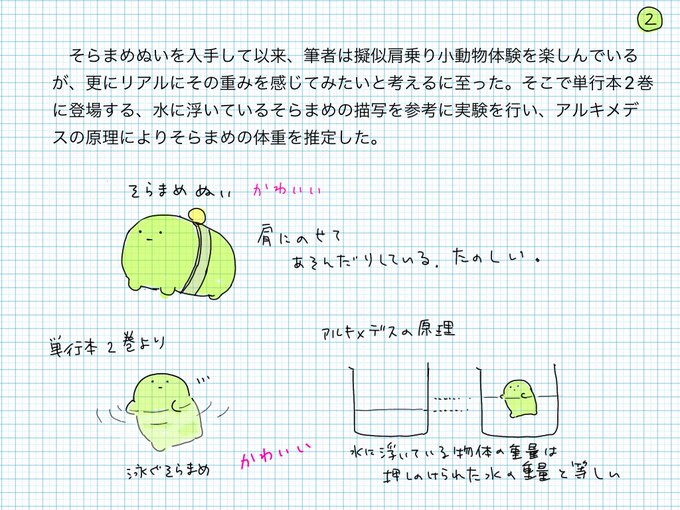 2
そらまめぬいを入手して以来、筆者は擬似肩乗り小動物体験を楽しんでいる
が、更にリアルにその重みを感じてみたいと考えるに至った。そこで単行本2巻
に登場する、水に浮いているそらまめの描写を参考に実験を行い、アルキメデ
スの原理によりそらまめの体重を推定した。
そらまめ ぬい かわいい
肩にのせて
あそんだりしている。たのしい。
単行本2巻より
アルキメデスの原理
泳ぐそらまめ
かわいい
水に浮いている物体の重量は
押しのけられた水の重量と等しい